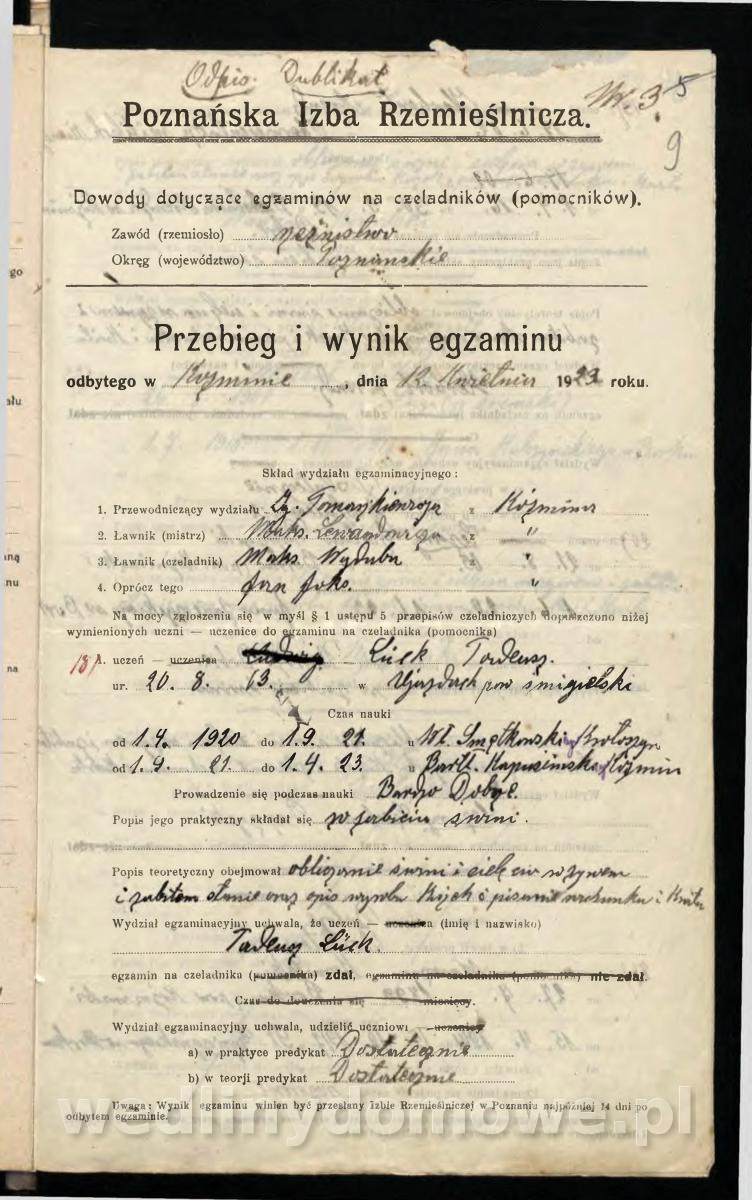 Odpis. Dublikat
Nr. 35
9
Poznańska Izba Rzemieślnicza.
Dowody dotyczące egzaminów na czeladników (pomocników).
Zawód (rzemiosło) rzeźnistwo
Okręg (województwo) Poznańskie
Przebieg i wynik egzaminu
odbytego w Koźminie, dnia 12. Kwietnia 1923 roku.
Skład wydziału egzaminacyjnego:
1. Przewodniczący wydziału z Koźmina
2. Ławnik (mistrz) Maks. z "
3. Ławnik (czeladnik) Maks. Wyduba z "
4. Oprócz tego Jan "
Na mocy zgłoszenia się w myśl § 1 ustępu 5 przepisów czeladniczych dopuszczono niżej
wymienionych uczni — uczenice do egzaminu na czeladnika (pomocnika)
1. uczeń — uczenica Ludwig Lück Tadeusz.
ur. 20. 8. 03. w pow śmigielski
Czas nauki
od 1.4. 1920 do 1.9. 21. u Wł. Smętkowski Krotoszyn
od 1.9. 21. do 1.4. 23. u Bartl. Koźmin
Prowadzenie się podczas nauki Bardzo Dobre.
Popis jego praktyczny składał się w zabiciu świni.
Popis teoretyczny obejmował obliczanie świni i cielęcia w żywem
i zabitem stanie oraz opis wyrobu i pisanie rachunku i Kwitu
Wydział egzaminacyjny uchwala, że uczeń — uczenica (imię i nazwisko)
Tadeusz Lück.
egzamin na czeladnika (pomocnika) zdał, egzaminu na czeladnika (pomocnika) nie zdał.
Czas do douczenia się miesięcy.
Wydział egzaminacyjny uchwala, udzielić uczniowi — uczenicy
a) w praktyce predykat Dostatecznie
b) w teorji predykat Dostatecznie
Uwaga: Wynik egzaminu winien być przesłany Izbie Rzemieślniczej w Poznaniu najpóźniej 14 dni po
odbytem egzaminie.
wedlinydomowe.pl